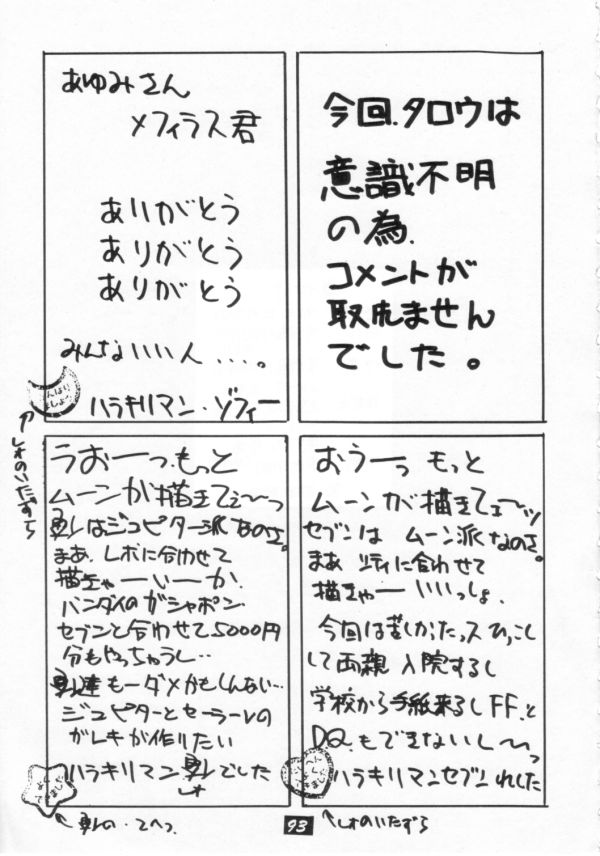 あゆみさん
メフィラス君
ありがとう
ありがとう
ありがとう
みんないい人 ....。
ハラキリマン・ゾフィー
今回、タロウは
意識不明
の為、
コメントが
取れません
でした。
うおーっ、もっと
ムーンが描きてぇ〜っ
はジュピター派なのさ。
まあ、レボに合わせて
描きゃーいーか、
バンダイのガシャポン
セブンと合わせて5000円
分もやっちゃうし…
達もーダメかもしんない…
ジュピターとセーラーVの
ガレキが作りたい
ハラキリマン でした
おうーっ もっと
ムーンが描きてェ〜ッ
セブンは ムーン派なのさ。
まあ シティに合わせて
描きゃー いいっしょ、
今回は苦しかったっス ひっこし
して両親 入院するし
学校から手紙来るしFF.と
DQ.もできないし〜っ
ハラキリマンセブンれした
のいたずら
の・てへっ、
93
のいたずら